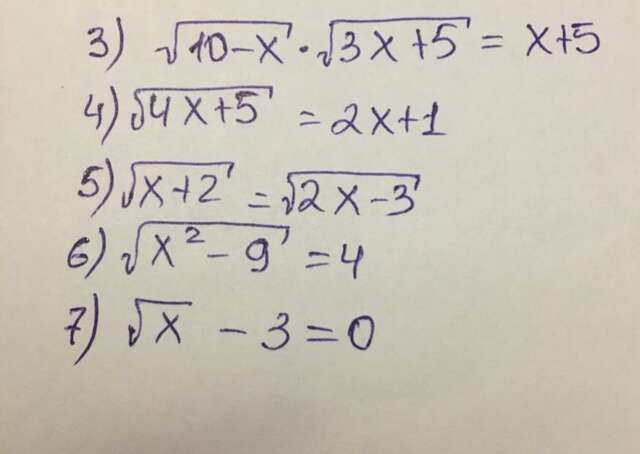 3) √(10-x) · √(3x+5) = x+5
4) √(4x+5) = 2x+1
5) √(x+2) = √(2x-3)
6) √(x²-9) = 4
7) √x - 3 = 0